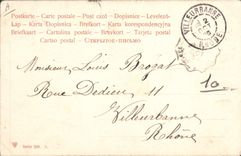 Postkarte - Carte postale - Post card - Dopisnice - Levelező-
Lap - Karta Dopisnica - Briefkort - Karta korespondencyjna
Brefkort - Cartolina postale - Brevkort - Tarjeta postal
Cartao postal - Открытое письмо
VILLEURBANNE
RHÔNE
Monsieur Louis
Rue Dedieu 11
Villeurbanne
Rhône
10